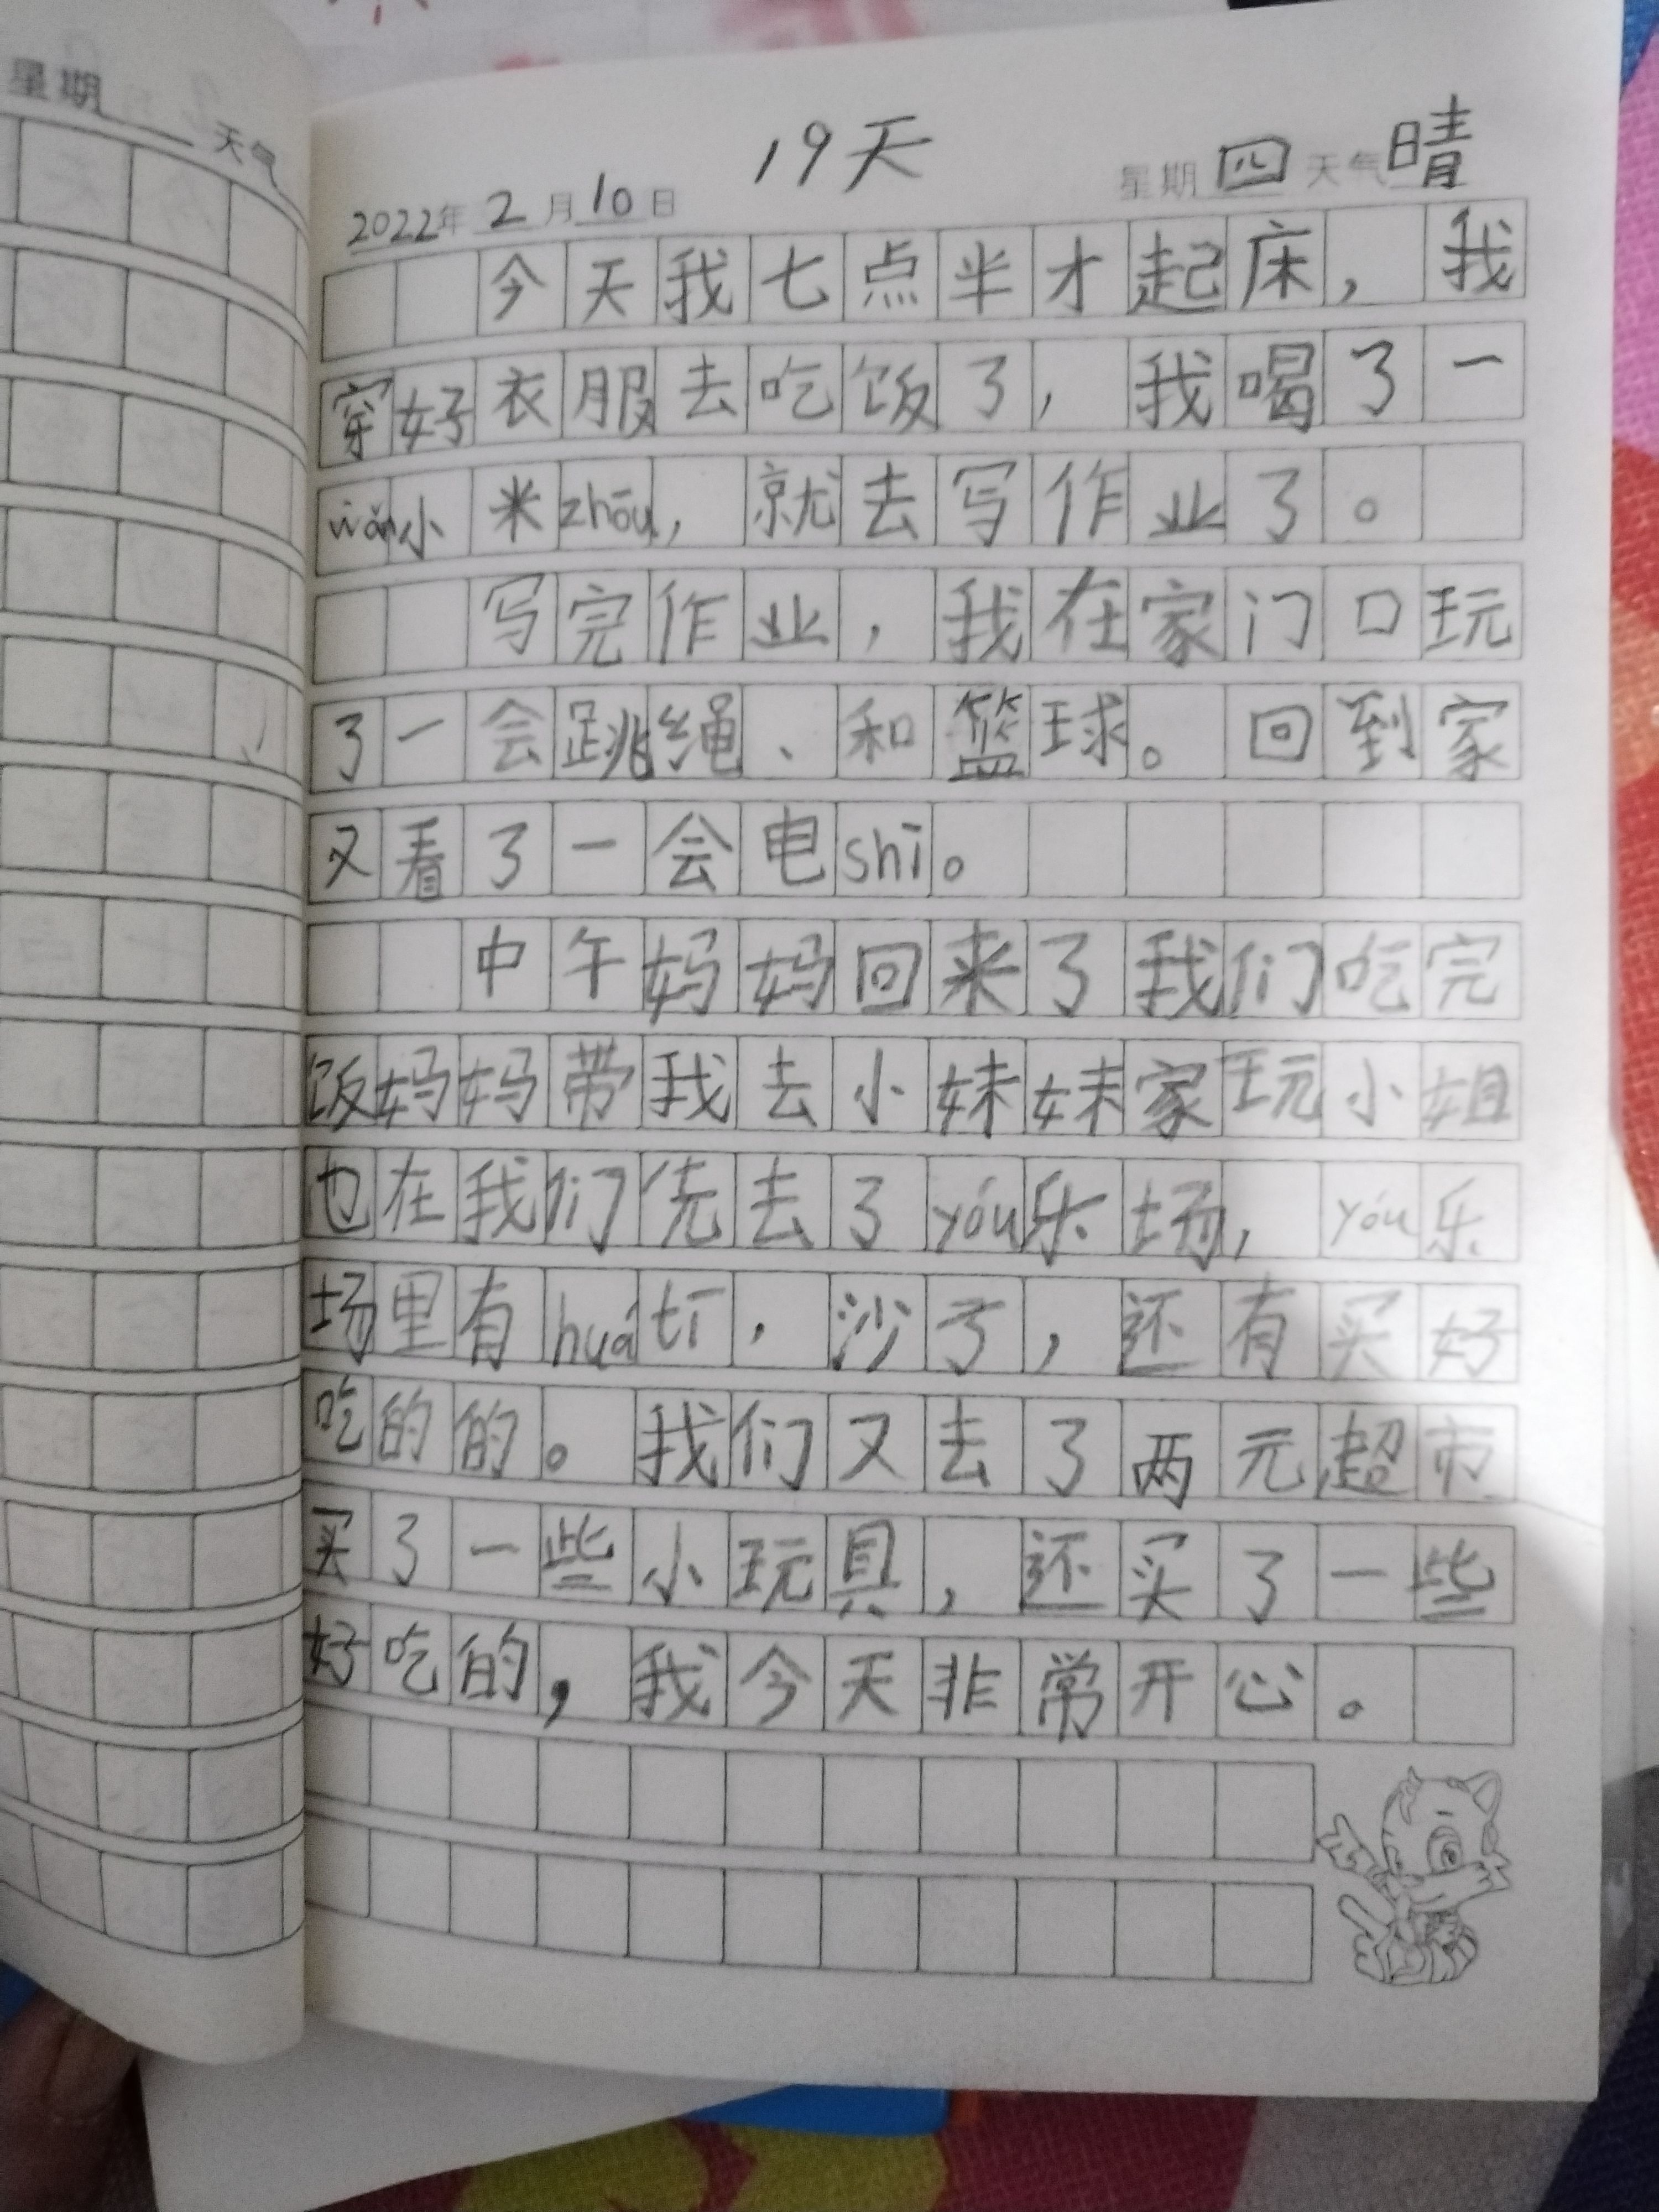 星期 天气
19天
2022年 2月10日 星期四 天气晴
今天我七点半才起床，我
穿好衣服去吃饭了，我喝了一
wǎn小米zhōu，就去写作业了。
写完作业，我在家门口玩
了一会跳绳、和篮球。回到家
又看了一会电shī。
中午妈妈回来了我们吃完
饭妈妈带我去小妹妹家玩小姐
也在我们先去了yóu乐场，yóu乐
场里有huátī，沙子，还有买好
吃的的。我们又去了两元超市
买了一些小玩具，还买了一些
好吃的，我今天非常开心。